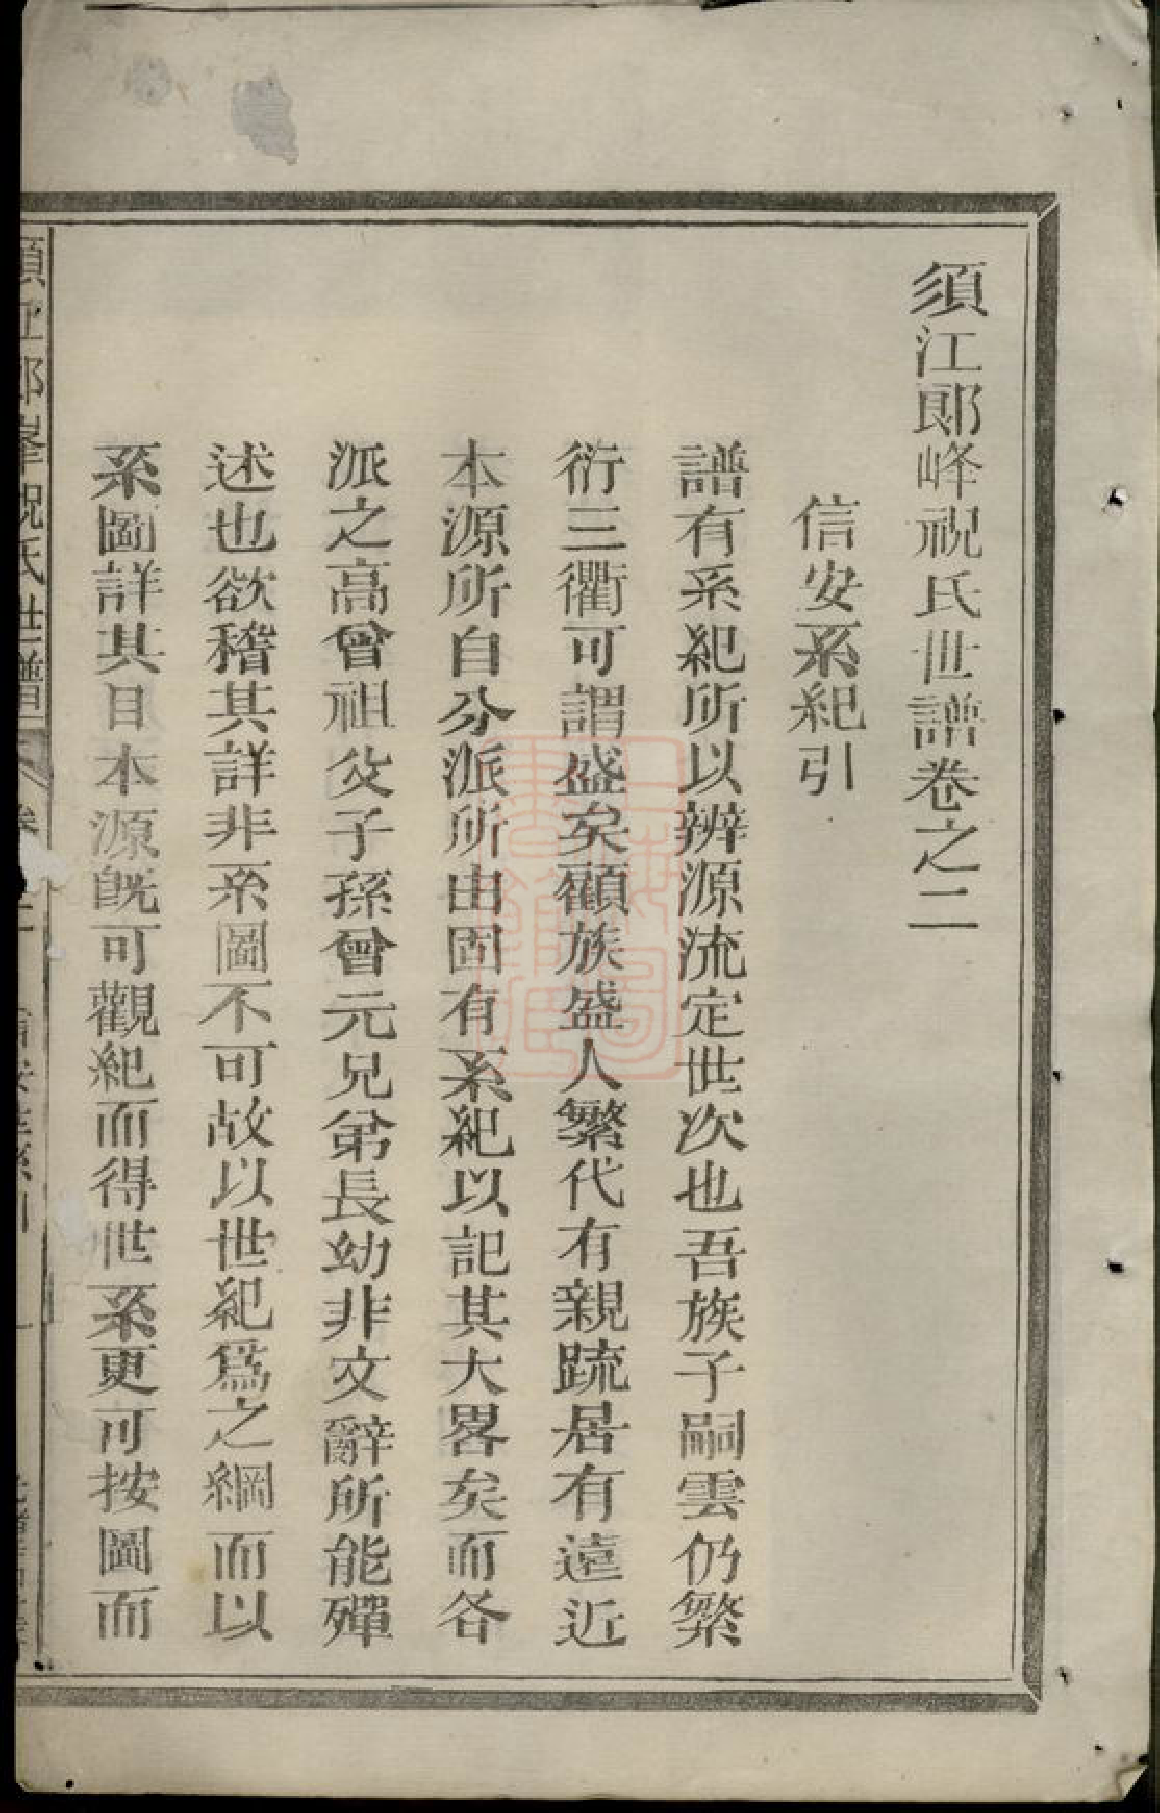 須江郎峰祝氏世譜卷之二
信安系紀引
譜有系紀所以辨源流定世次也吾族子嗣雲仍繁
衍三衢可謂盛矣顧族盛人繁代有親疏居有遠近
本源所自分派所由固有系紀以記其大畧矣而各
派之高曾祖父子孫曾元兄弟長幼非文辭所能殫
述也欲稽其詳非系圖不可故以世紀爲之綱而以
系圖詳其目本源旣可觀紀而得世系更可按圖而
須江郎峯祝氏世譜